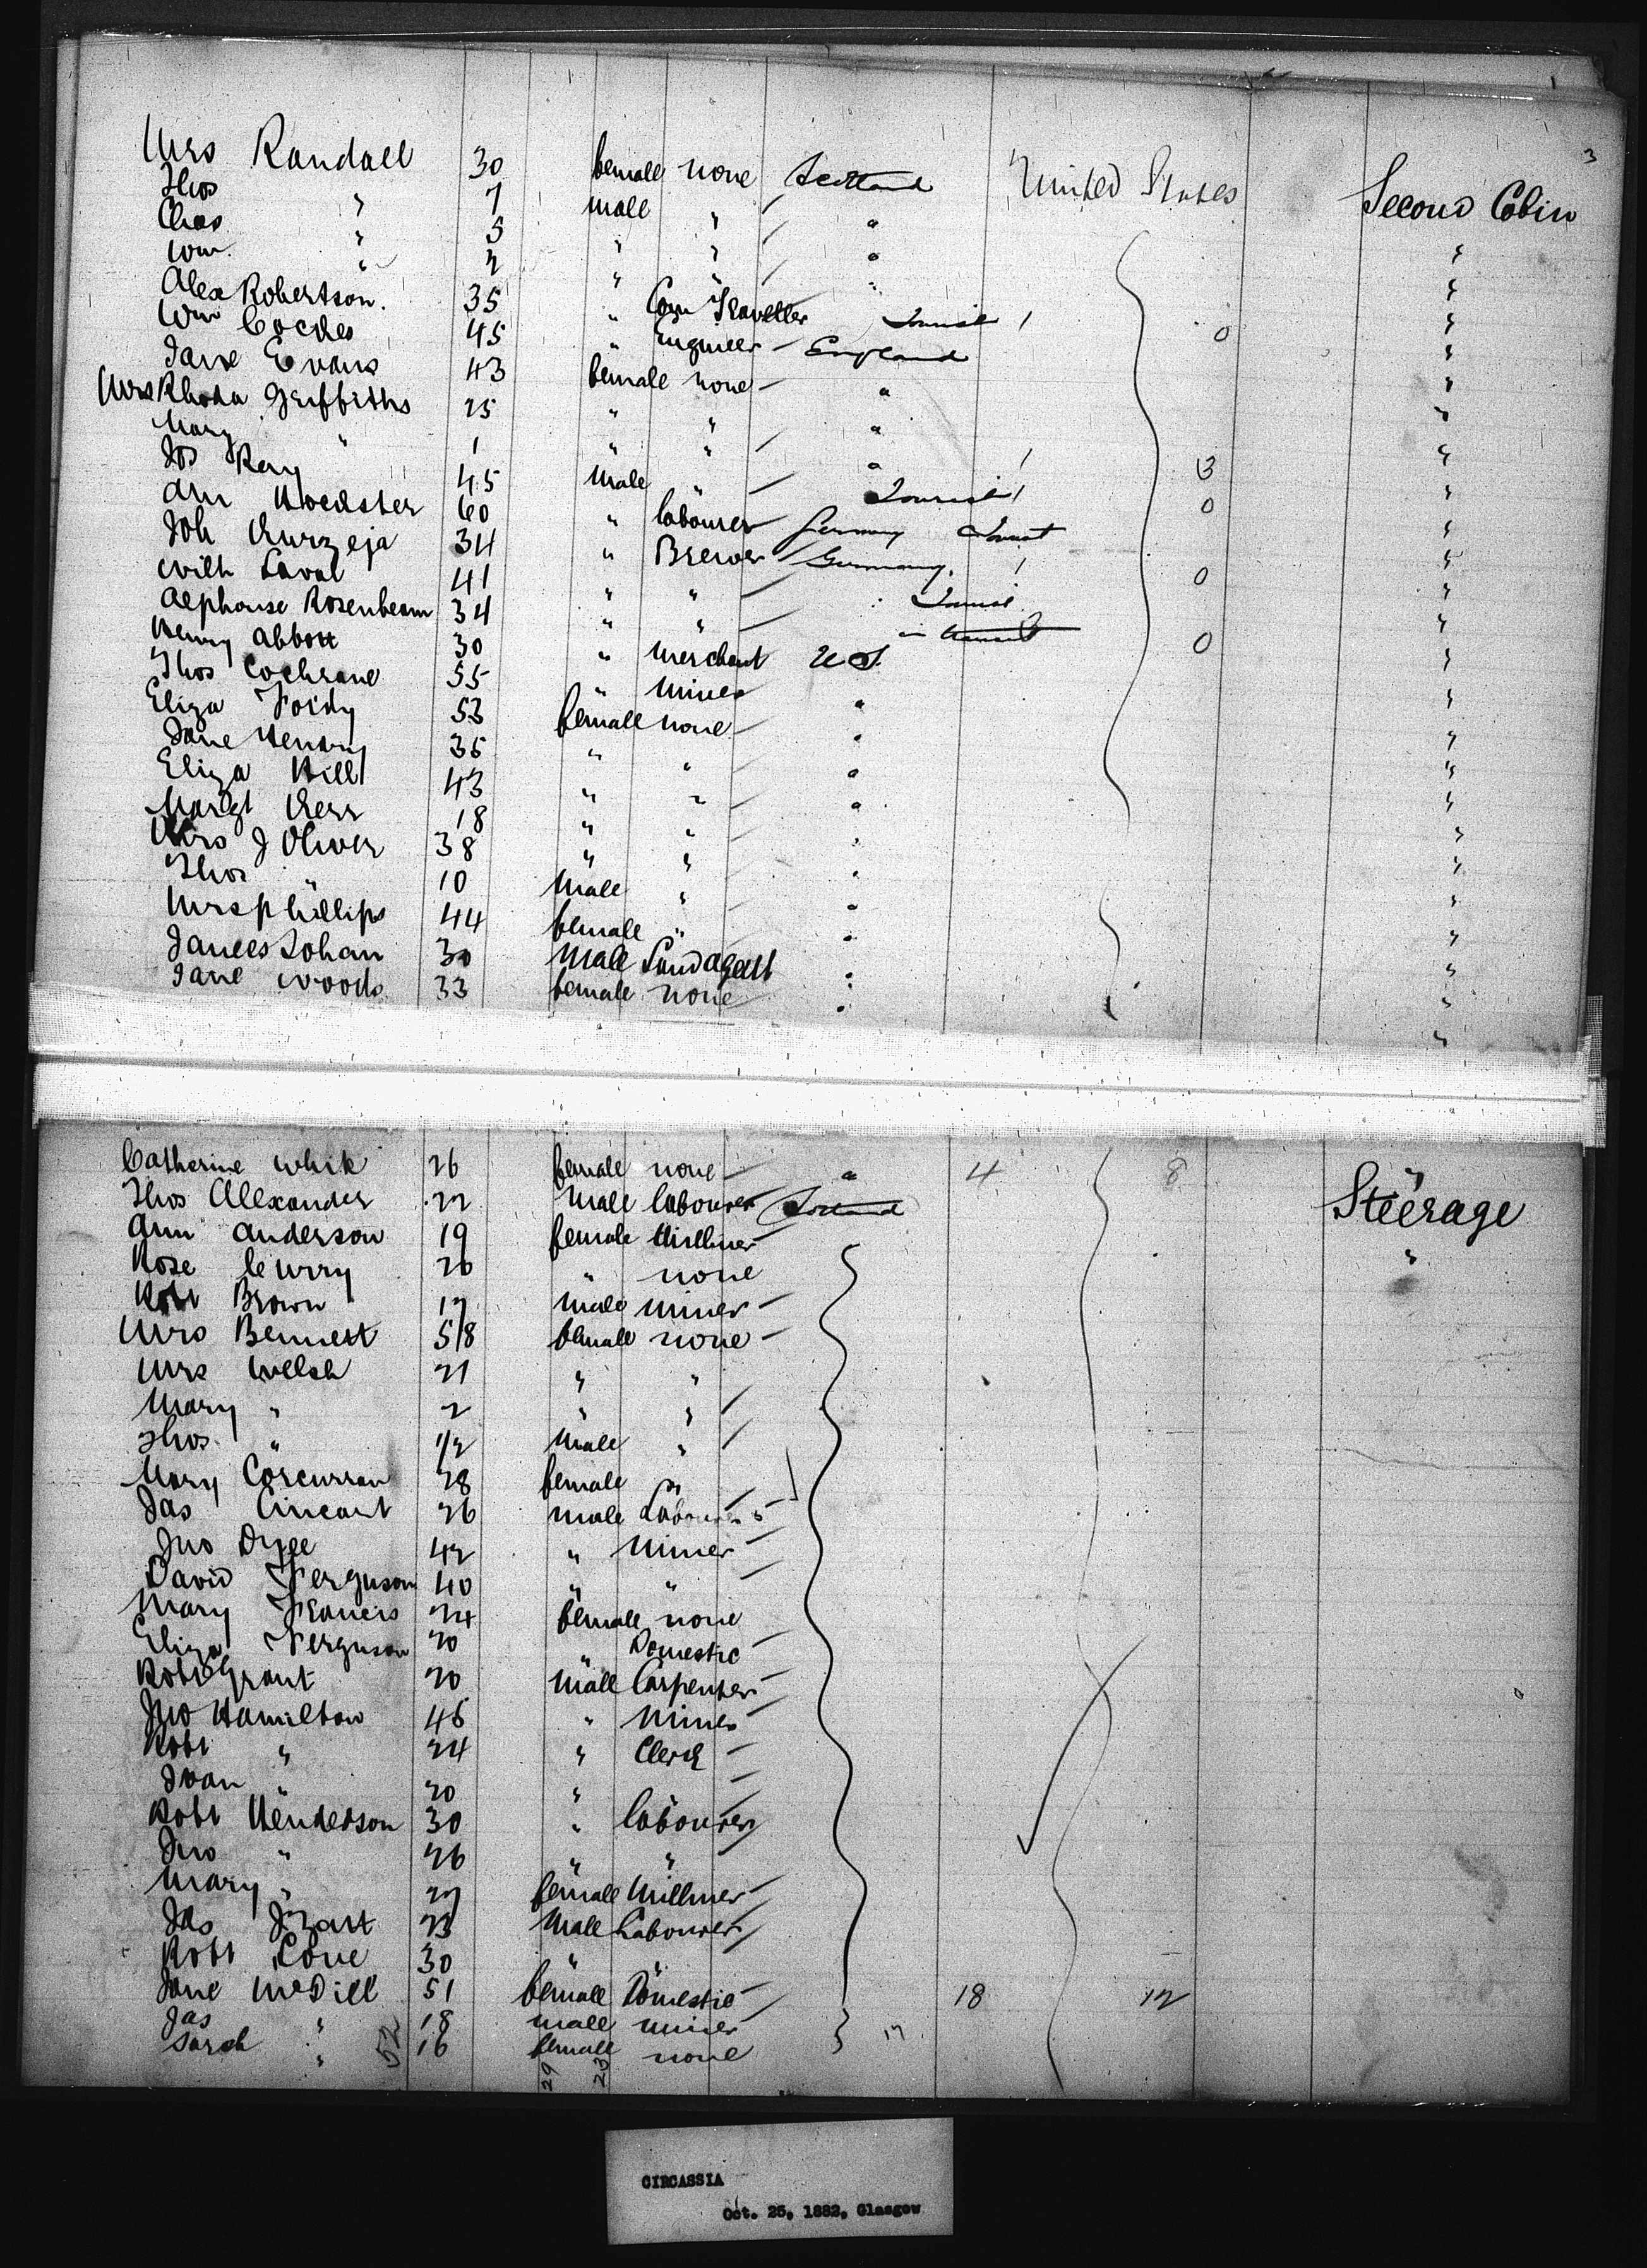 3
Mrs Randall 30 female none Scotland United States Second Cabin
Thos " 7 male " " "
Chas " 5 " " " "
Wm. " 2 " " " "
Alex Robertson. 35 " Com Traveller Tourist 1 0 "
Wm Cockes 45 " Engineer England "
Jane Evans 43 female none " "
Mrs Rhoda Griffiths 25 " " " "
Mary " 1 " " " "
Jos Ray 45 male " Tourist 1 "
60 " labourer Germany Tourist 0 "
Joh Kurzeja 34 " Brewer Germany. 1 "
Wilh Laval 41 " " 0 "
Alphonse Rosenbeam 34 " " Tourist "
Henry Abbott 30 " Merchant U S. 0 "
Thos Cochrane 55 " Miner " "
Eliza 53 female none " "
Jane Hendry 35 " " " "
Eliza Hill 43 " " " "
Margt Kerr 18 " " " "
Mrs J Oliver 38 " " " "
Thos " 10 male " " "
Mrs Phillips 44 female " " "
James Lohan 30 male Land agent " "
Jane Woods 33 female none " "
Catherine White 26 female none " 4 8 "
Thos Alexander 22 male labourer Scotland Steerage
Ann Anderson 19 female Milliner "
Rose Curry 26 " none
Robt Brown 17 male miner
Mrs Bennett 58 female none
Mrs Welsh 21 " "
Mary " 2 " "
Thos. " 1/2 male "
Mary Corcurran 28 female "
Jas 26 male Labourer
Jno Dyce 42 " Miner
David Ferguson 40 " "
Mary Francis 24 female none
Eliza Ferguson 20 " Domestic
Robt Grant 20 male Carpenter
Jno Hamilton 46 " Miner
Robt " 24 " Clerk
Ivan " 20 "
Robt Henderson 30 " labourer
Jno " 26 " "
Mary " 27 female Milliner
Jas 23 male Labourer
Robt Love 30 " "
Jane McDill 51 female Domestic 18 12
Jas " 18 male miner 17
Sarah " 16 female none
52 29 23
CIRCASSIA
Oct. 25, 1882, Glasgow